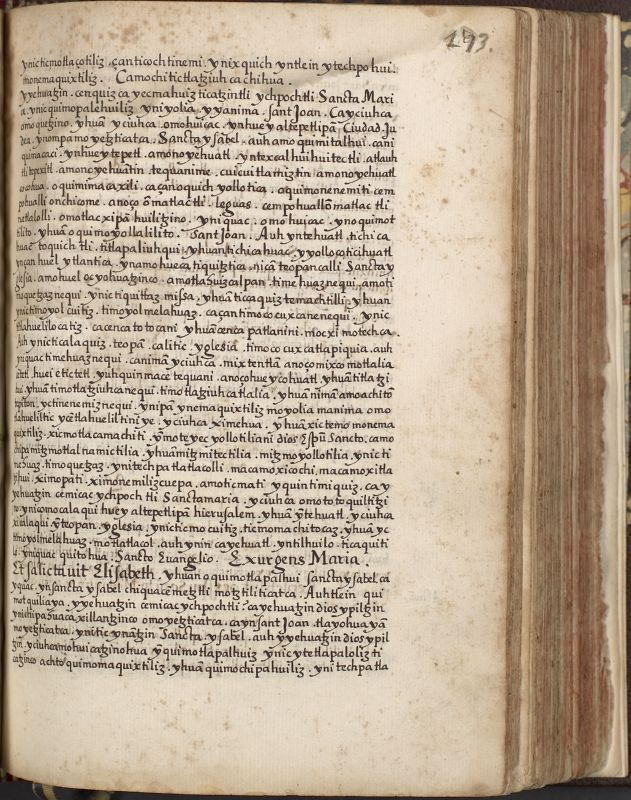 193.
ynic ticmotlaçotiliz, çan ticochtinemi. ynixquich yntlein ytechpohui.
monemaquixtiliz. Camochi tictlatziuhcachihua.
Yyehuatzin. cenquizca yecmahuizticatzintli ychpochtli Sancta Mari
a. ynic quimopalehuiliz yniyolia, yyanima. sant Joan. Ca yciuhca
omoquetzino. yhuā yciuhca. omohuicac. ynhuey altepetlipā. Ciudad Ju
dea. ynompa moyetzticatca. Sancta ysabel. auh amo quimitalhui. cani
quinacaci. ynhuey tepetl. amono yehuatl. yntexcalhuihuitectli. atlauh
tli tepexitl. amono yehuātin. tequanime. cuicuitlamiztin. amono yehuatl
cocohua. oquimimacaxili. ca çan oquich yollotica. oquimonenemiti cem
pohualli onchicome. anoço ōmatlactli. leguas. cempohuallōmatlactli
netlalolli. omotlacxipāhuilitzino. yniquac. omohuicac. ynoquimot
tilito. yhuā oquimoyollalilito. Sant Joan. Auh yntehuatl. tichica
huac toquichtli. titlapaliuhqui. yhuan tichicahuac. yyolloco ticihuatl
ynçan huel ytlantica. ynamo hueca tiquiztica. nicā teopancalli Sancta y
glesia. amo huel oc yohuatzinco. amo tlahuizcalpan. timehuaznequi. amo ti
moquetzaznequi. ynic tiquittaz missa. yhuā ticcaquiz temachtilli. yhuan
ynic tinoyolcuitiz. timoyolmelahuaz. ca çan timococuxcanenequi. ynic
titlahuelilocatiz. cacenca totocani yhuā cenca patlanini. mocximotechca.
Auh ynic ticalaquiz. teopā. calitic. yglesia. timococuxcatlapiquia. auh
ynquac timehuaznequi. canimā yciuhca. mixtentlā anoço mixco motlalia
cētetl. huei etictetl. yuhquinmace tequani. anoço huey cohuatl. yhuā titlatzi
hui. yhuā timotlatziuhcanequi. timotlatziuhcatlalia. yhuā nimā amo achitō
tepiton. yc tinenemiznequi. ynipā ynemaquixtiliz moyolia manima omo
tlahueliltic ycētlahueliltini ye. yciuhca ximehua. yhuā xictemo monema
quixtiliz. xicmotlacamachiti. ynmoteyec yollotiliani dios Espū Sancto. camo
chipa mitzmotlalnamictilia. yhuā mitzmitectilia. mitzmoyollotilia. ynic ti
mehuaz. timoquetzaz. ynitechpa tlatlacolli. macamo xicochi, macamo xitla
tzihui. ximopati. ximonemilizcuepa. amo ticmati yquin timiquiz. ca y
yehuatzin cemicac ychpochtli Sancta maria. yciuhca omototoquiltitzi
no. ynicomocalaqui huey altepetlipā hierusalem. yhuā yntehuatl. yciuhca
xicalaqui ynteopan. yglesia. ynic ticmocuitiz. ticmomachitocaz. yhuā yc
timoyolmelahuaz. motlatlacol. auh ynin ca yehuatl. yntilhuilo. ticaquiti
lo. yniquac quitohua. Sancto Euangelio. Exurgens Maria.
Et salictauit Elisabeth. yhuan oquimotlapalhui sancta ysabel. ca
yquac. ynsancta ysabel chiquacemetztli motztiliticatca. Auh tlein qui
motquiliaya. yyehuatzin cemicac ychpochtli? ca yehuatzin dios ypiltzin
ynichipahuaca xillantzinco omoyetzticatca. ca yn sant Joan. tlayohuayā
moyetzticatca. ynitic ynantzin Sancta ysabel. auh yn yehuatzin dios ypil
tzin. yciuhca mohuicatzinohua ynquimotlapalhuiz ynic ytetlapaloliz ti
catzinco achto quimomaquixtiliz. yhuā quimochipahuiliz. ynitechpa tla